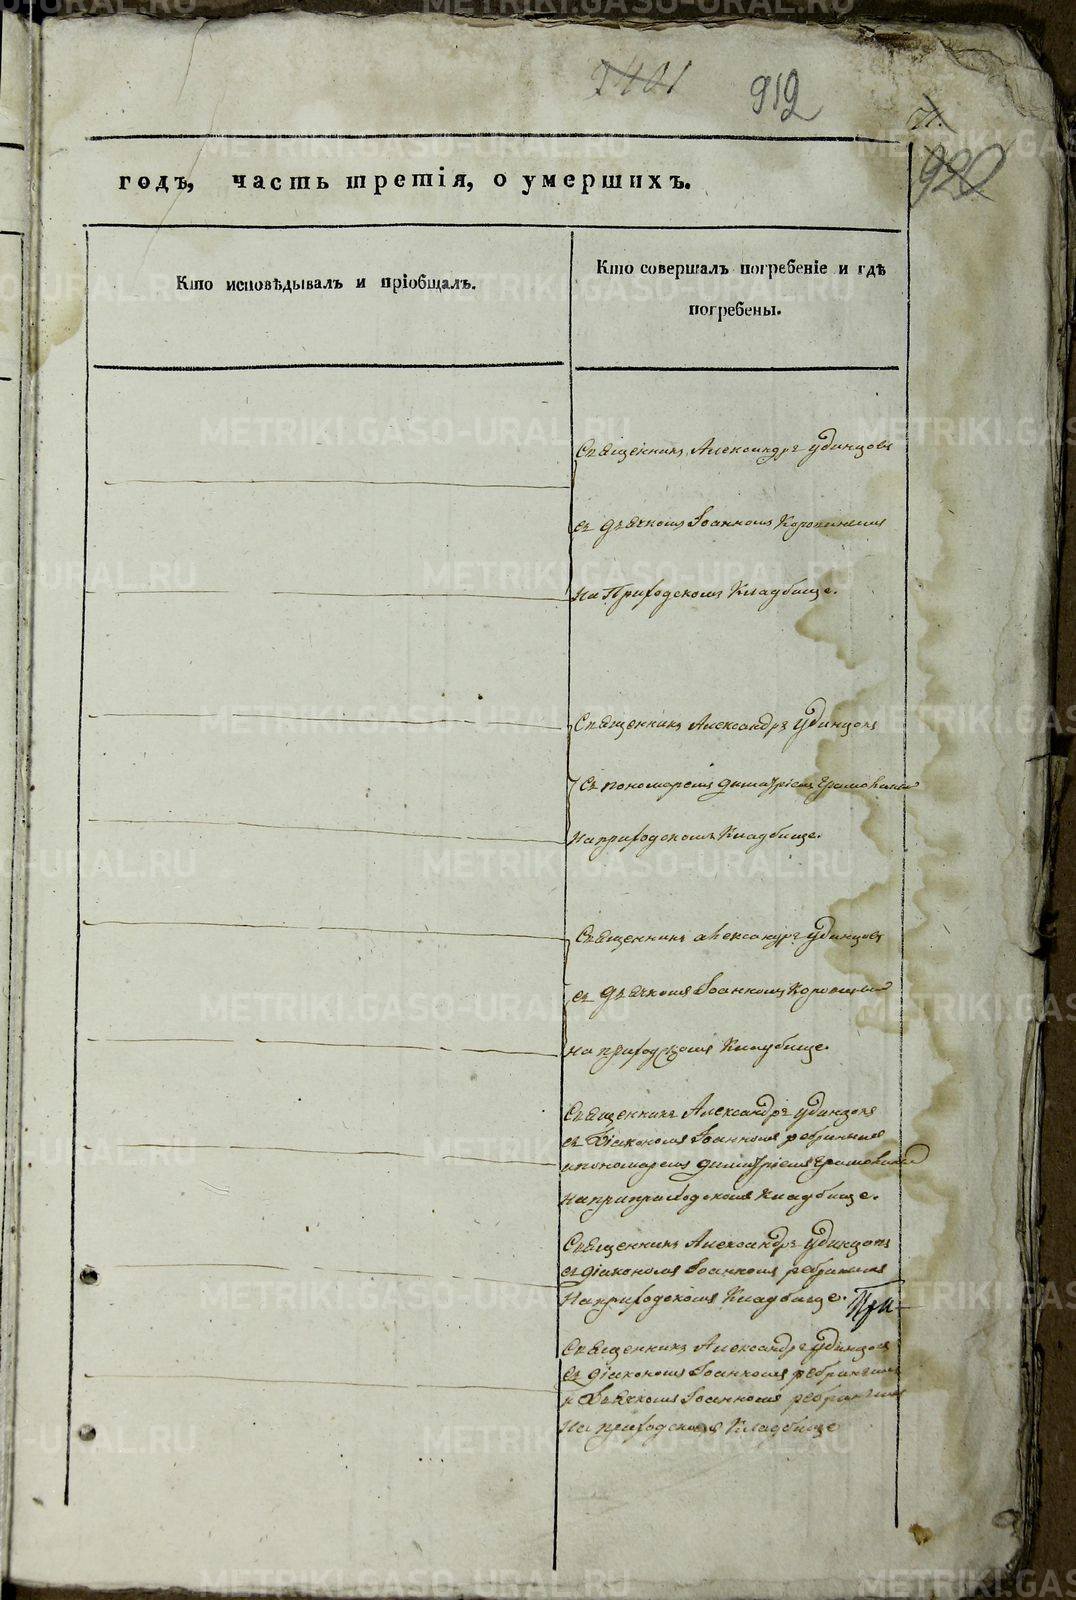 912
920
годъ, часть третія, о умершихъ.
Кто исповѣдывалъ и пріобщалъ.
Кто совершалъ погребеніе и гдѣ
погребены.
Священникъ Александръ Удинцовъ
съ дьячкомъ Іоанномъ
на Приходскомъ Кладбище.
Священникъ Александръ Удинцовъ
съ пономаремъ Димитріемъ
на приходскомъ Кладбище.
Священникъ Александръ Удинцовъ
съ дьячкомъ Іоанномъ
на приходскомъ Кладбище.
Священникъ Александръ Удинцовъ
съ Діакономъ Іоанномъ
и пономаремъ Димитріемъ
Кладбище.
Священникъ Александръ Удинцовъ
съ діакономъ Іоанномъ
На приходскомъ Кладбище. При-
Священникъ Александръ Удинцовъ
съ діакономъ Іоанномъ
и Дьячкомъ Іоанномъ
На приходскомъ Кладбище
METRIKI.GASO-URAL.RU